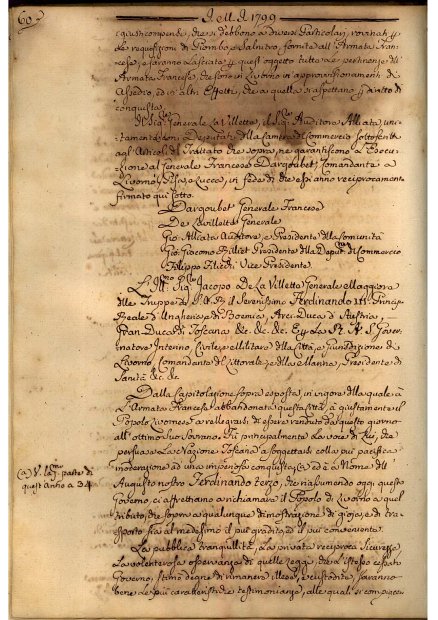 60
J. M. J. 1799
i giusti compensi, che si debbono a diversi Particolari, rovinati p
le requisizioni di Piombo, e Salnitro, fornite all'Armata Fran-
cese, e saranno lasciate p quest'oggetto tutte le pertinenze dll'
Armata Francese, che sono in Livorno in approvisionamenti di
Assedio, ed in altri Effetti, che a quella si aspettano p diritto di
conquista.
Il Sig. Generale La Villette, il Sig. Auditore Alliata, uni-
tamente ai Deputati dlla Camera di Commercio sottoscritti
agl'Articoli dl Trattato che sopra, ne garantiscono l'Esecu-
zione al Generale Francese Dargoubet, Comandante a
Livorno, Pisa, e Lucca, in fede di che essi anno reciprocamente
firmato qui sotto.
Dargoubet Generale Francese
De Lavillette Generale
Gio: Alliata Auditore, e Presidente dlla Comunità
Gio: Giacomo Balliet Presidente dlla Deput. di Commercio
Filippo Filicchi Vice Presidente.
L'Ill. Sig. Jacopo De La Villette Generale Maggiore
dlle Truppe di S. A. R. il Serenissimo Ferdinando III. Principe
Reale d'Ungheria, e di Boemia, Arci-Duca d'Austria,
Gran-Duca di Toscana &c. &c. &c. E p La St. A. S. Gover-
natore Interino, Civile, e Militare dlla Città, e Giurisdizione di
Livorno, Comandante dl Littorale, e dlla Marina, Presidente di
Sanità &c. &c.
Dalla Capitolazione sopra esposta, in vigore dlla quale à
l'Armata Francese abbandonata questa Città, à giustamente il
Popolo Livornese a rellegrarsi di essere renduto da questo giorno
all'ottimo suo Sovrano. Fù principalmente la voce di Lui, che
persuase la Nazione Toscana a soggettarsi colla più pacifica
moderazione ad una impensata conquista; (a) ed è a Nome dll'
Augusto nostro Ferdinando Terzo, che riassumendo oggi questo
Governo, ci affrettiamo a richiamare il Popolo di Livorno a quel
tributo, che sopra a qualunque dimostrazione di gioja, e di tra-
sporto sia al medesimo il più gradito, ed il più conveniente.
La pubblica tranquillità, la privata reciproca sicurezza
la volenterosa osservanza di quelle Leggi, che l'istesso cessato
Governo, stimò degne di rimanere illese, e custodite, saranno
bene le più caratteristiche testimonianze, alle quali si compiacerà
(a) V. la p. parte di
quest'Anno a 34